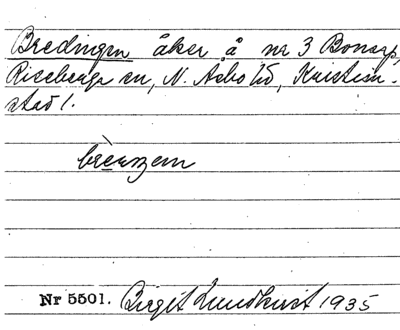 Bredingen åker å nr 3 Bonarp,
Riseberga sn, N. Åsbo hd, Kristian-
stad l.
Nr 5501. Birgit Lundkvist 1935